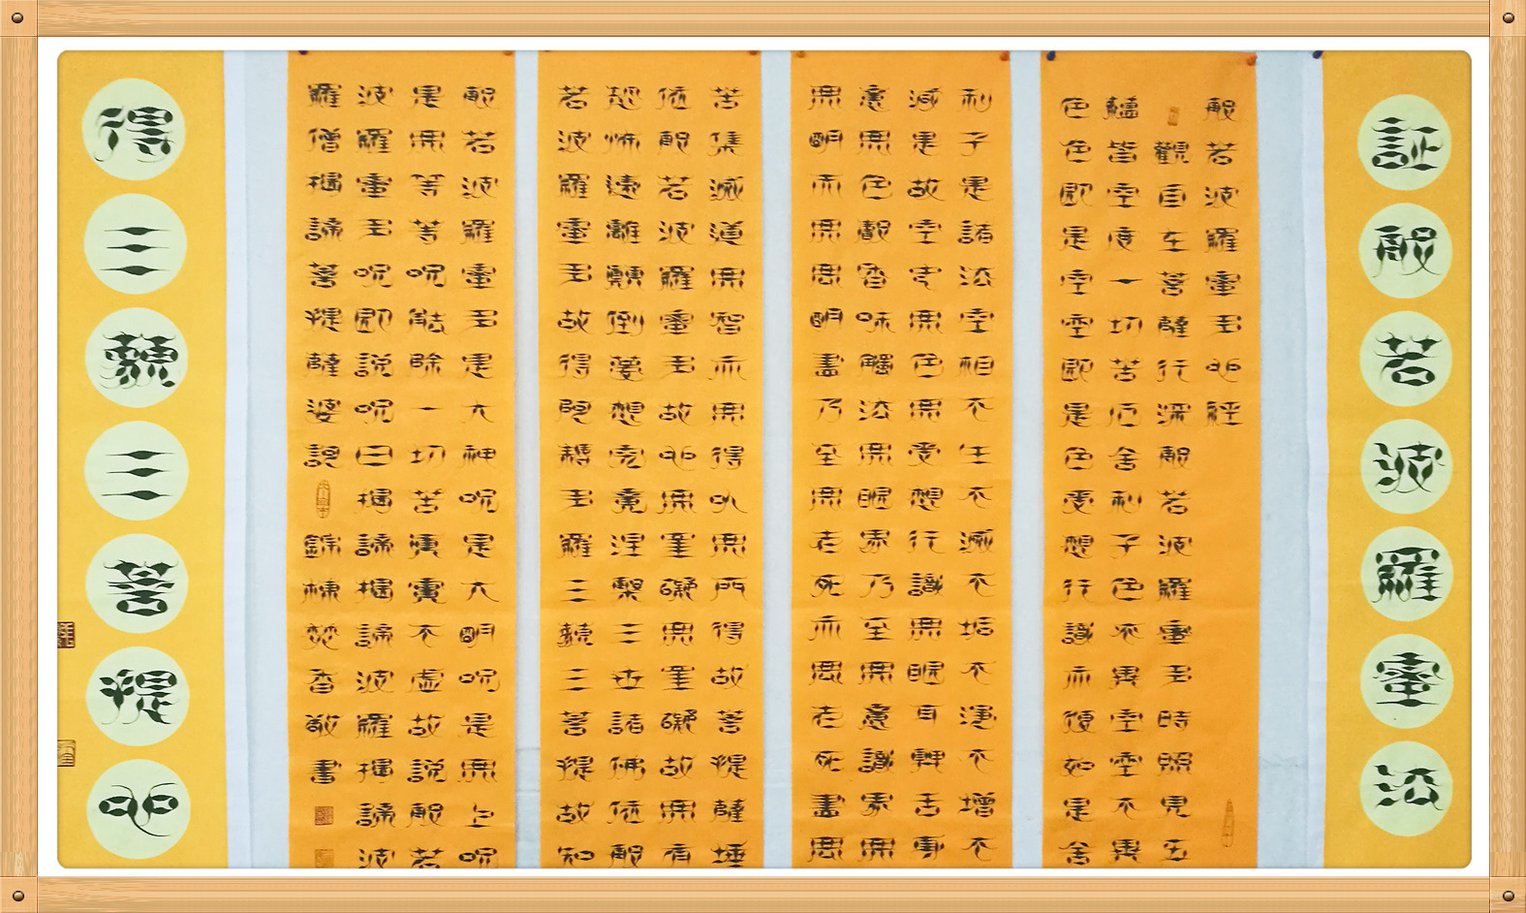 証般若波羅蜜法
般若波羅蜜多心経
觀自在菩薩行深般若波羅蜜多時照見五
蘊皆空度一切苦厄舍利子色不異空空不異
色色即是空空即是色受想行識亦復如是舍
利子是諸法空相不生不滅不垢不淨不增不
減是故空中無色無受想行識無眼耳鼻舌身
意無色聲香味觸法無眼界乃至無意識界無
無明亦無無明盡乃至無老死亦無老死盡無
苦集滅道無智亦無得以無所得故菩提薩埵
依般若波羅蜜多故心無罣礙無罣礙故無有
恐怖遠離顛倒夢想究竟涅槃三世諸佛依般
若波羅蜜多故得阿耨多羅三藐三菩提故知
般若波羅蜜多是大神咒是大明咒是無上咒
是無等等咒能除一切苦真實不虛故說般若
波羅蜜多咒即說咒曰揭諦揭諦波羅揭諦波
羅僧揭諦菩提薩婆訶 錦棟焚香敬書
得三藐三菩提心